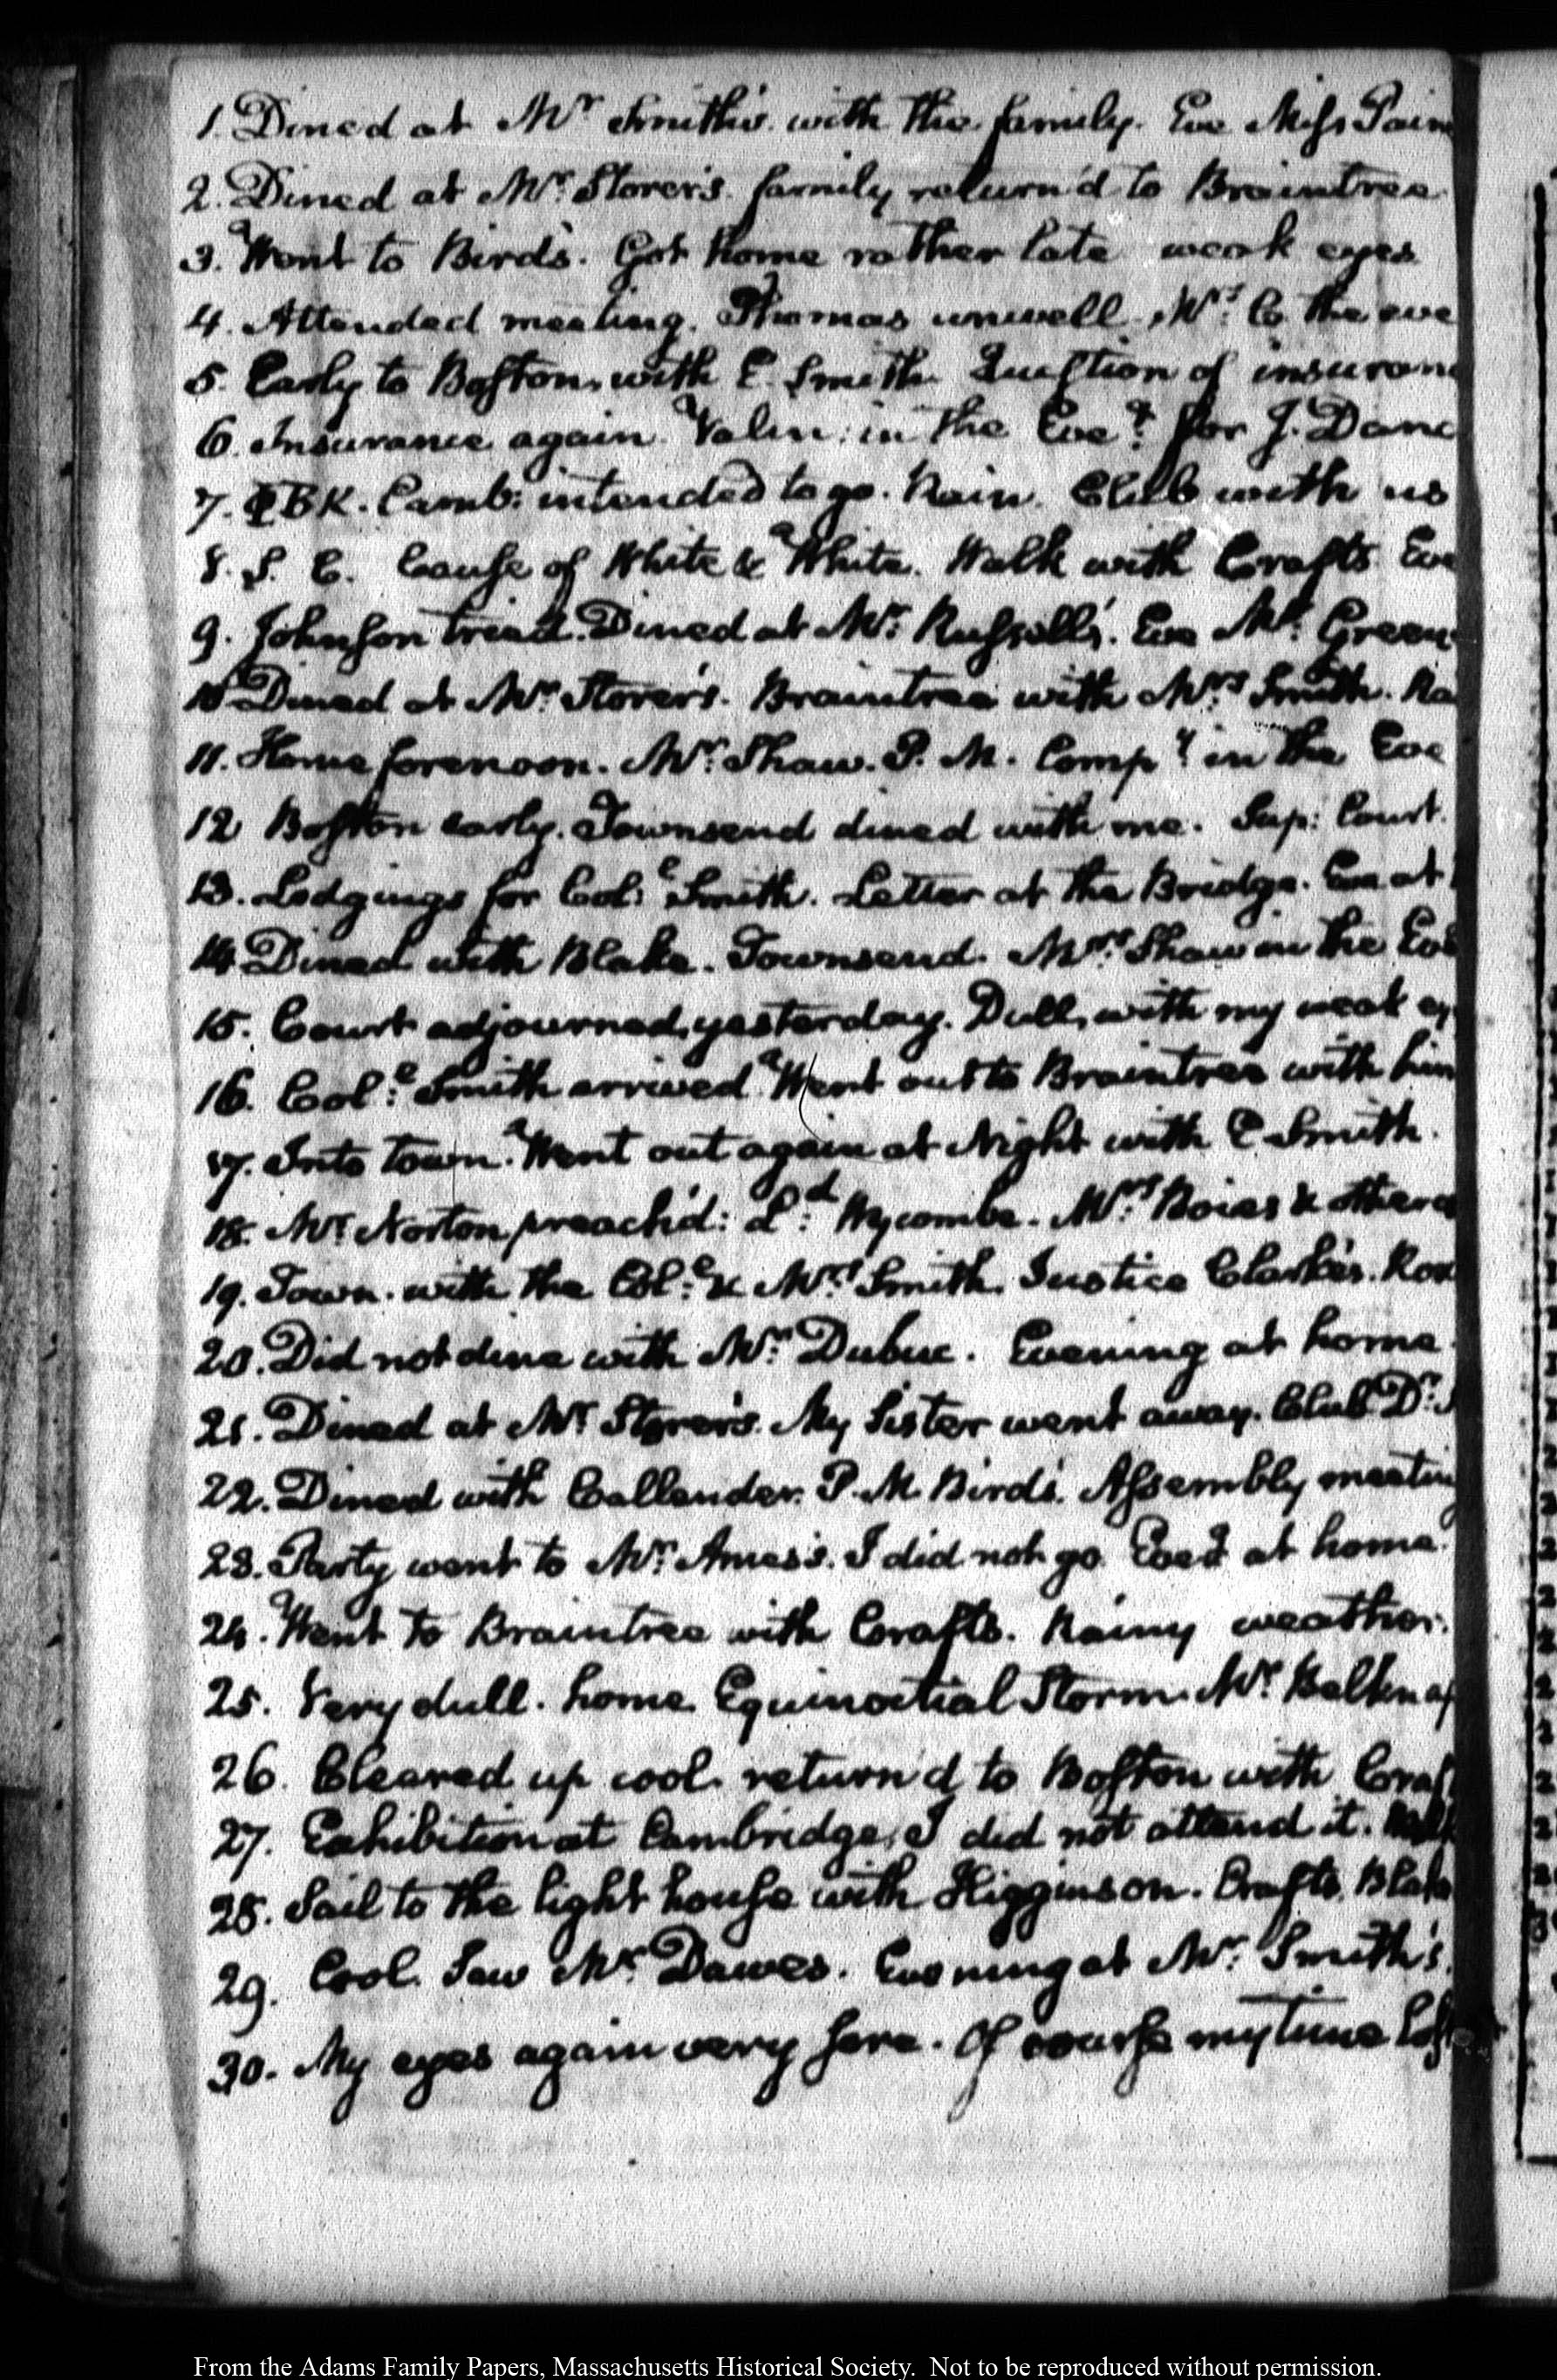 1. Dined at Mr Smith's. with the family. Eve Miss Pain
2. Dined at Mr: Storer's. family return'd to Braintree
3. Went to Bird's. Got home rather late weak eyes
4. Attended meeting. Thomas unwell. Mrs: C. the eve
5. Early to Boston, with E. Smith. Question of insuran
6. Insurance again. Valen: in the Eveg: for J. Danc
7. ΦBK. Camb: intended to go. Rain. Club with us
8. S. C. Cause of White & White. Walk with Crafts Eve
9. Johnson tried. Dined at Mr: Russell's. Eve Mr: Green
10 Dined at Mr: Storer's. Braintree with Mrs: Smith. Ra
11. Home forenoon. Mr: Shaw. P. M. Compy: in the Eve
12 Boston early. Townsend dined with me. Sup: Court.
13. Lodgings for Col:e Smith. Letter at the Bridge. Eve at
14 Dined with Blake. Townsend. Mrs: Shaw in the Eve
15. Court adjourned, yesterday. Dull, with my weak ey
16. Col:e Smith arrived Went out to Braintree with him
17. Into town. Went out again at Night with E Smith.
18. Mr: Norton preach'd: Ld: Wycombe. Mrs: Boies & others
19. Town. with the Col:e & Mrs: Smith. Justice Clarke's. Rox
20. Did not dine with Mr: Dubuc. Evening at home.
21. Dined at Mr: Storer's. My Sister went away. Club Dr:
22. Dined with Callender. P. M. Bird's. Assembly meetin
23. Party went to Mr: Ames's. I did not go Eveg at home.
24. Went to Braintree with Crafts. Rainy weather.
25. Very dull. home Equinoctial Storm. Mr: Belknap
26. Cleared up cool. return'd to Boston with Craf
27. Exhibition at Cambridge, I did not attend it.
28. Sail to the light house with Higginson. Crafts. Blake
29. Cool. Saw Mr: Dawes. Evening at Mr: Smith's.
30. My eyes again very sore. Of course my time Lost
From the Adams Family Papers, Massachusetts Historical Society. Not to be reproduced without permission.